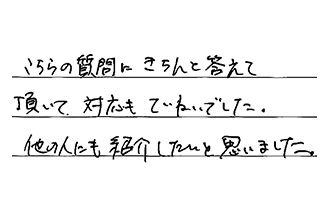 こちらの質問にきちんと答えて
頂いて、対応もていねいでした。
他の人にも紹介したいと思いました。